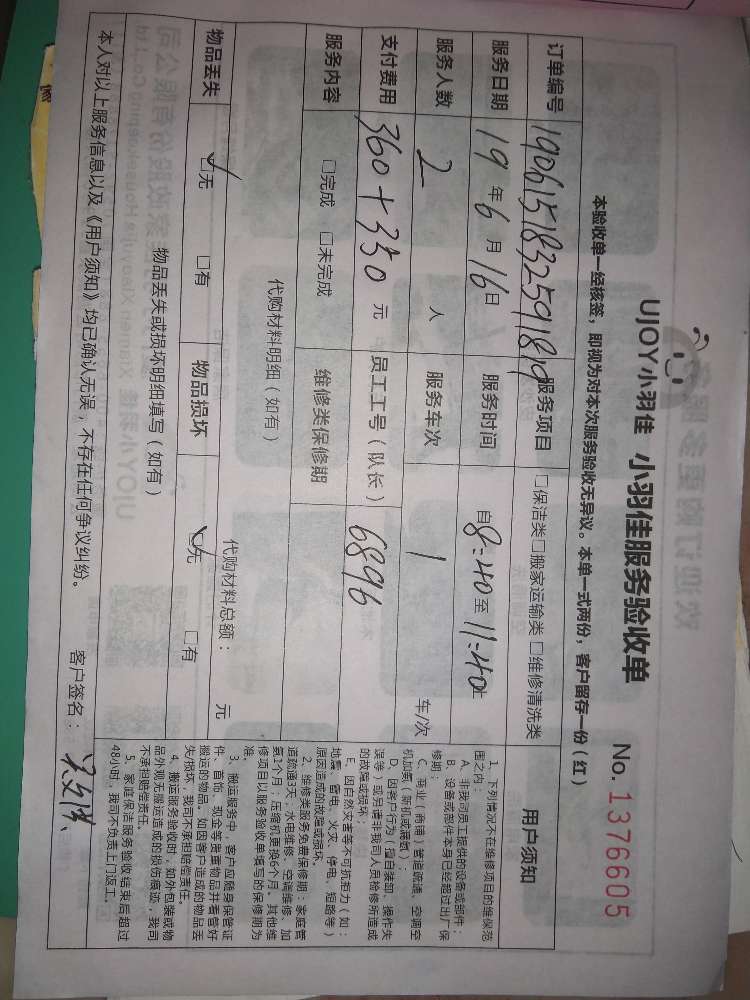 UJOY小羽佳 小羽佳服务验收单
No. 1376605
本验收单一经核签，即视为对本次服务验收无异议。本单一式两份，客户留存一份（红）
订单编号 190615183259181 服务项目 □保洁类□搬家运输类 □维修清洗类
服务日期 19 年 6 月 16 日 服务时间 自 8:40 至 11:40 止
服务人数 2 人 服务车次 1 车/次
支付费用 360+350 元 员工工号（队长） 6896
服务内容 □完成 □未完成 维修类保修期
代购材料明细（如有） 代购材料总额： 元
物品丢失 ☑无 □有 物品损坏 ☑无 □有
物品丢失或损坏明细填写（如有）
本人对以上服务信息以及《用户须知》均已确认无误，不存在任何争议纠纷。 客户签名：
用户须知
1、下列情况不在维修项目的维保范
围之内：
A、非我司员工提供的设备或部件；
B、设备或部件本身已经超过出厂保
修期；
C、商业（商铺）管道疏通、空调空
机加氟（新机或漏氟）；
D、因客户行为（擅自装卸、操作失
误等）或另请非我司人员检修所造成
的故障或损坏；
E、因自然灾害等不可抗拒力（如：
地震、雷电、火灾、停电、短路等）
原因造成的故障或损坏。
2、维修类服务免费保修期：家庭管
道疏通3天；水电维修、空调维修、加
氨1个月；压缩机更换6个月。其他维
修项目以服务验收单填写的保修期为
准。
3、搬运服务中，客户应随身保管证
件、首饰、现金等贵重物品并看管好
搬运的物品。如因客户造成的物品丢
失/损坏，我司不承担赔偿责任。
4、搬运服务验收时，如外包装或物
品外观无搬运造成的损伤痕迹，我司
不承担赔偿责任。
5、家庭保洁服务验收结束后超过
48小时，我司不负责上门返工。